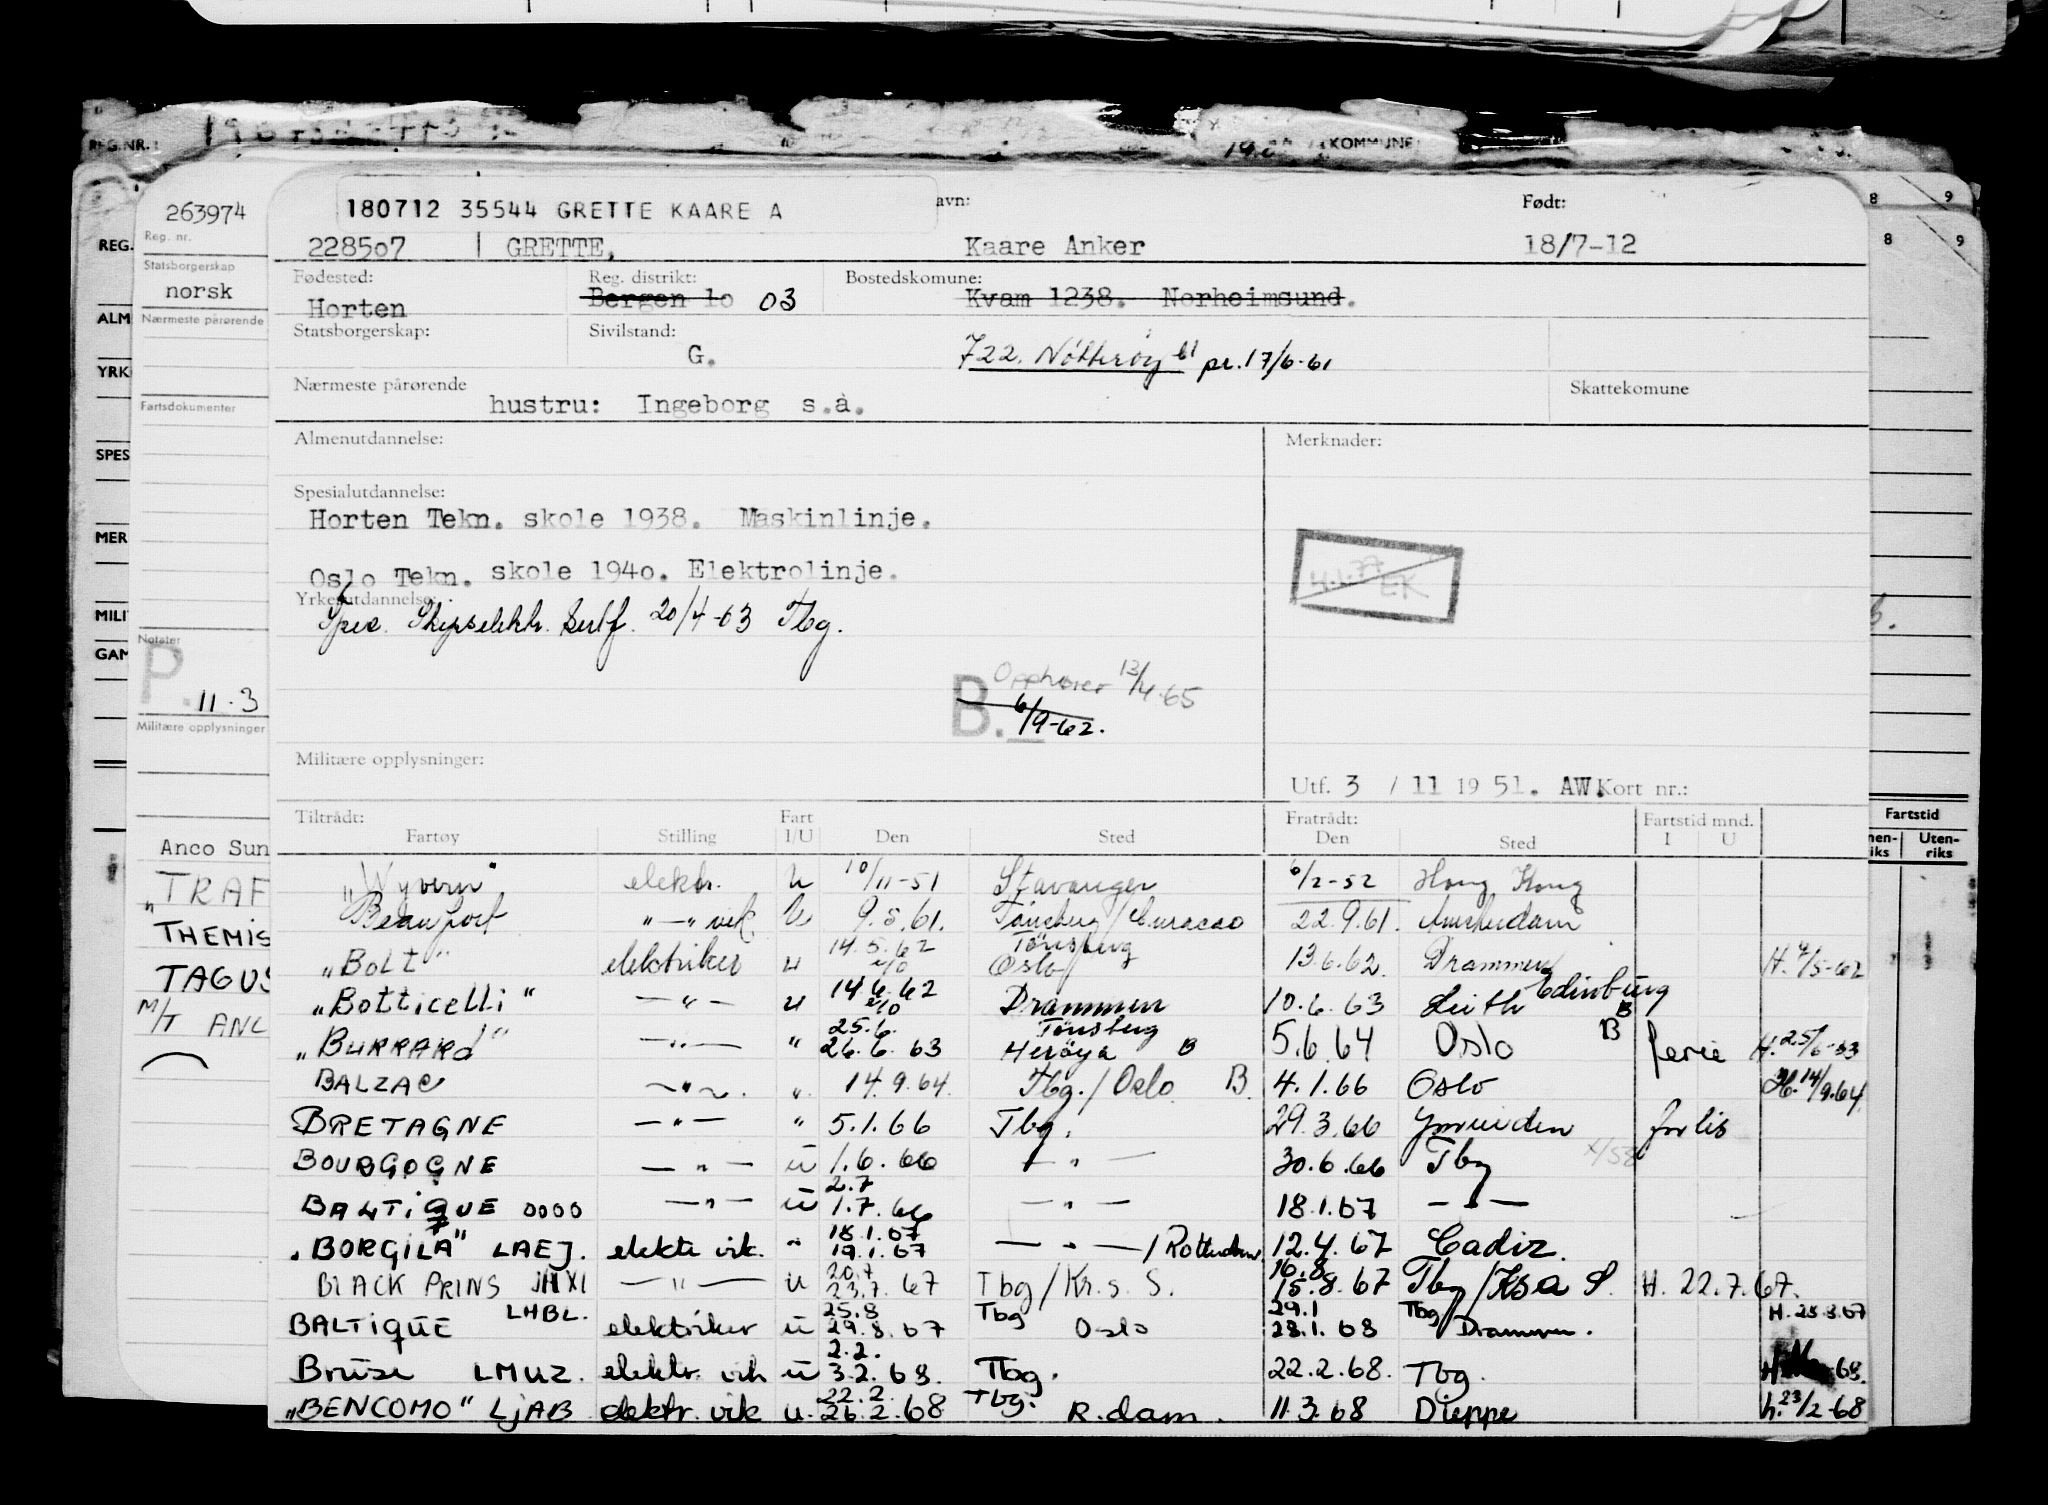 REG.NR.
KOMMUNE
263974
Reg. nr.
Statsborgerskap
norsk
Nærmeste pårørende
Fartsdokumenter
Notater
P. 11.3
Militære opplysninger
Anco Sun
„TRAF
THEMIS
TAGUS
M/T ANC
REG.
ALM
YRK
SPES
MER
MILI
GAM
8 9
8 9
Fartstid
Uten-
riks
180712 35544 GRETTE KAARE A
avn:
Født:
228507 GRETTE, Kaare Anker 18/7-12
Fødested: Reg. distrikt: Bostedskomune:
Horten Bergen 1o 03 Kvam 1238. Norheimsund.
Statsborgerskap: Sivilstand:
G. 722. Nötteröy bl pr. 17/6-61
Nærmeste pårørende Skattekomune
hustru: Ingeborg s.à.
Almenutdannelse: Merknader:
Spesialutdannelse:
Horten Tekn. skole 1938. Maskinlinje.
Oslo Tekn. skole 194o. Elektrolinje.
Yrkesutdannelse:
Spes. Skipselektr. Sertf. 20/4-63 Tbg.
EK
Opphører 13/4-65
B. 6/9-62.
Militære opplysninger:
Utf. 3 / 11 19 51. AW. Kort nr.:
Tiltrådt: Fart Fratrådt: Fartstid mnd.
Fartøy Stilling I/U Den Sted Den Sted I U
„Wyvern" elektr. u 10/11-51 Stavanger 6/2-52 Hong Kong
Beauport "—" vik. u 9.5.61. Tönsberg / Curacao 22.9.61. Amsterdam
14.5.62 Tönsberg
„Bolt" elektriker u Oslo 13.6.62. Drammen H. 4/5-62
„Botticelli" —"— u 14.6.62 Drammen 10.6.63 Leith Edinburg B
25.6. Tönsberg
„BURRARd" —"— " 26.6.63 Heröya B 5.6.64 Oslo B ferie H. 25/6-63
BALZAC —"—. " 14.9.64. Tbg./Oslo. B. 4.1.66 Oslo H. 14/9.64.
BRETAGNE —"— " 5.1.66 Tbg. 29.3.66 Ymuiden forlis
BOURGOGNE —"— u 1.6.66 —"— 30.6.66 Tbg
2.7
BALTIQUE —"— u 1.7.66 —"— 18.1.67 —"—
18.1.67
„BORGILA" LAEJ. elektr vik. " 19.1.67 —"—/Rotterdam 12.4.67 Cadiz.
20.7 16.8
BLACK PRINS JHXI —"— u 23.7.67 Tbg/Kr.s.S. 15.8.67 Tbg/Ksa S. H. 22.7.67.
LHBL. 25.8 Tbg 29.1 Tbg
BALTIQUE elektriker u 29.8.67 Oslo 28.1.68 Drammen. H. 25.8.67
2.2.
Bruse LMUZ. elektr. vik u 3.2.68. Tbg. 22.2.68. Tbg. H. 68.
22.2. Tbg.
„BENCOMO" LJAB elektr. vik u. 26.2.68 R.dam. 11.3.68 Dieppe h. 23/2-68